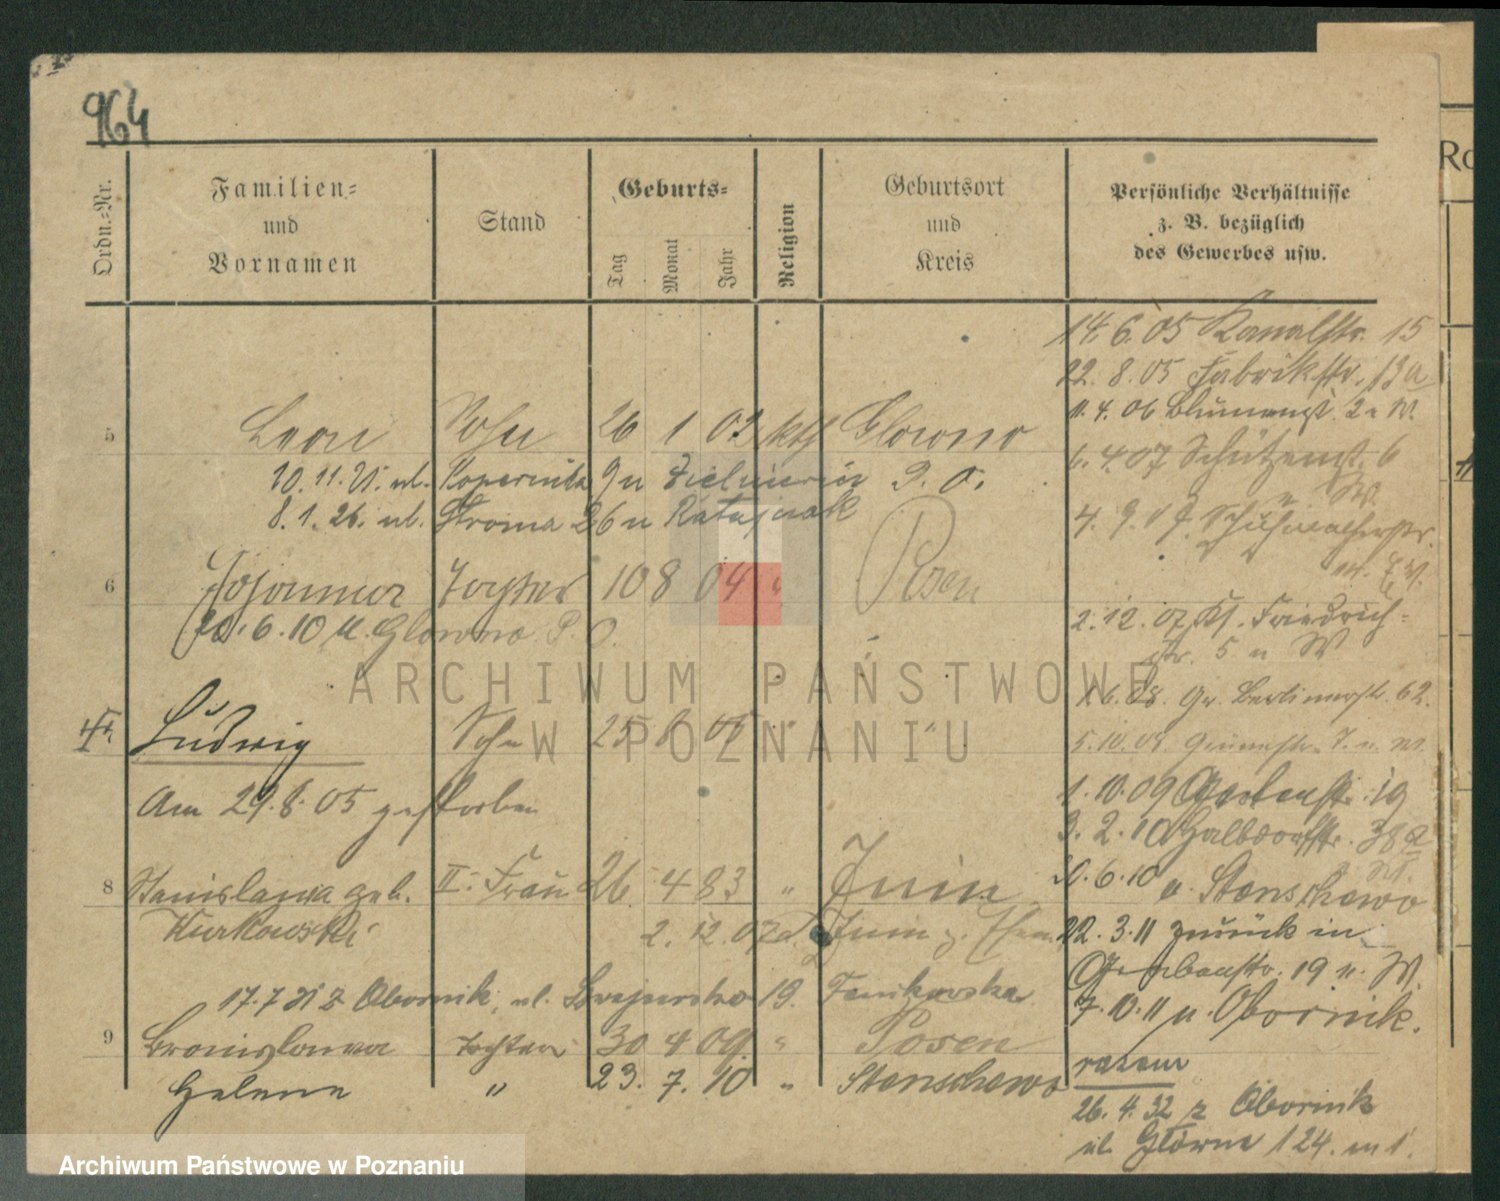 964
Ordn.-Nr.
Familien-
und
Vornamen
Stand
Geburts-
Tag
Monat
Jahr
Religion
Geburtsort
und
Kreis
Persönliche Verhältnisse
z. B. bezüglich
des Gewerbes usw.
14. 6. 05 Kanalstr. 15
22. 8. 05 Fabrikstr. 13a
11. 4. 06 Blumenst. 2 n W.
5 Leon Sohn 26 1 02 kth Glowno
6. 4. 07 Schützenst. 6
n W.
10. 11. 21. ul. Kopernika 9 u P. O.
8. 1. 26. ul. Stroma 26 u Ratajczak
4. 9. 07. Schuhmacherstr.
6 Johanna Tochter 10 8 04 " Posen
20. 6. 10 n. Glowno P. O.
2. 12. 07 Kl. Friedrich-
str. 5 n W
6. 08. Gr. Berlinerstr. 62.
7. Ludwig Sohn 25 6 05 " "
5. 10. 08. Grünestr. 7. n. W.
Am 29. 8. 05 gestorben
1. 10. 09 Gerbenstr. 19
3. 2. 10 Halbdorfstr. 38a
8 Stanislawa geb. II. Frau 26. 4 83 " Junin
20. 6. 10 n. Stenschewo
Kurkowski
2. 12. 07
22. 3. 11 zurück in
Gerbenstr. 19 n. W.
17. 7 21 z Obornik, ul. 19.
7. 10. 11 n. Obornik.
9 Bronislawa Tochter 30 4 09. " Posen
razem
Helene " 23. 7. 10 " Stenschewo
26. 4. 32 z Obornik
ul. Główna 124. m 1.
ARCHIWUM PAŃSTWOWE
W POZNANIU
Archiwum Państwowe w Poznaniu